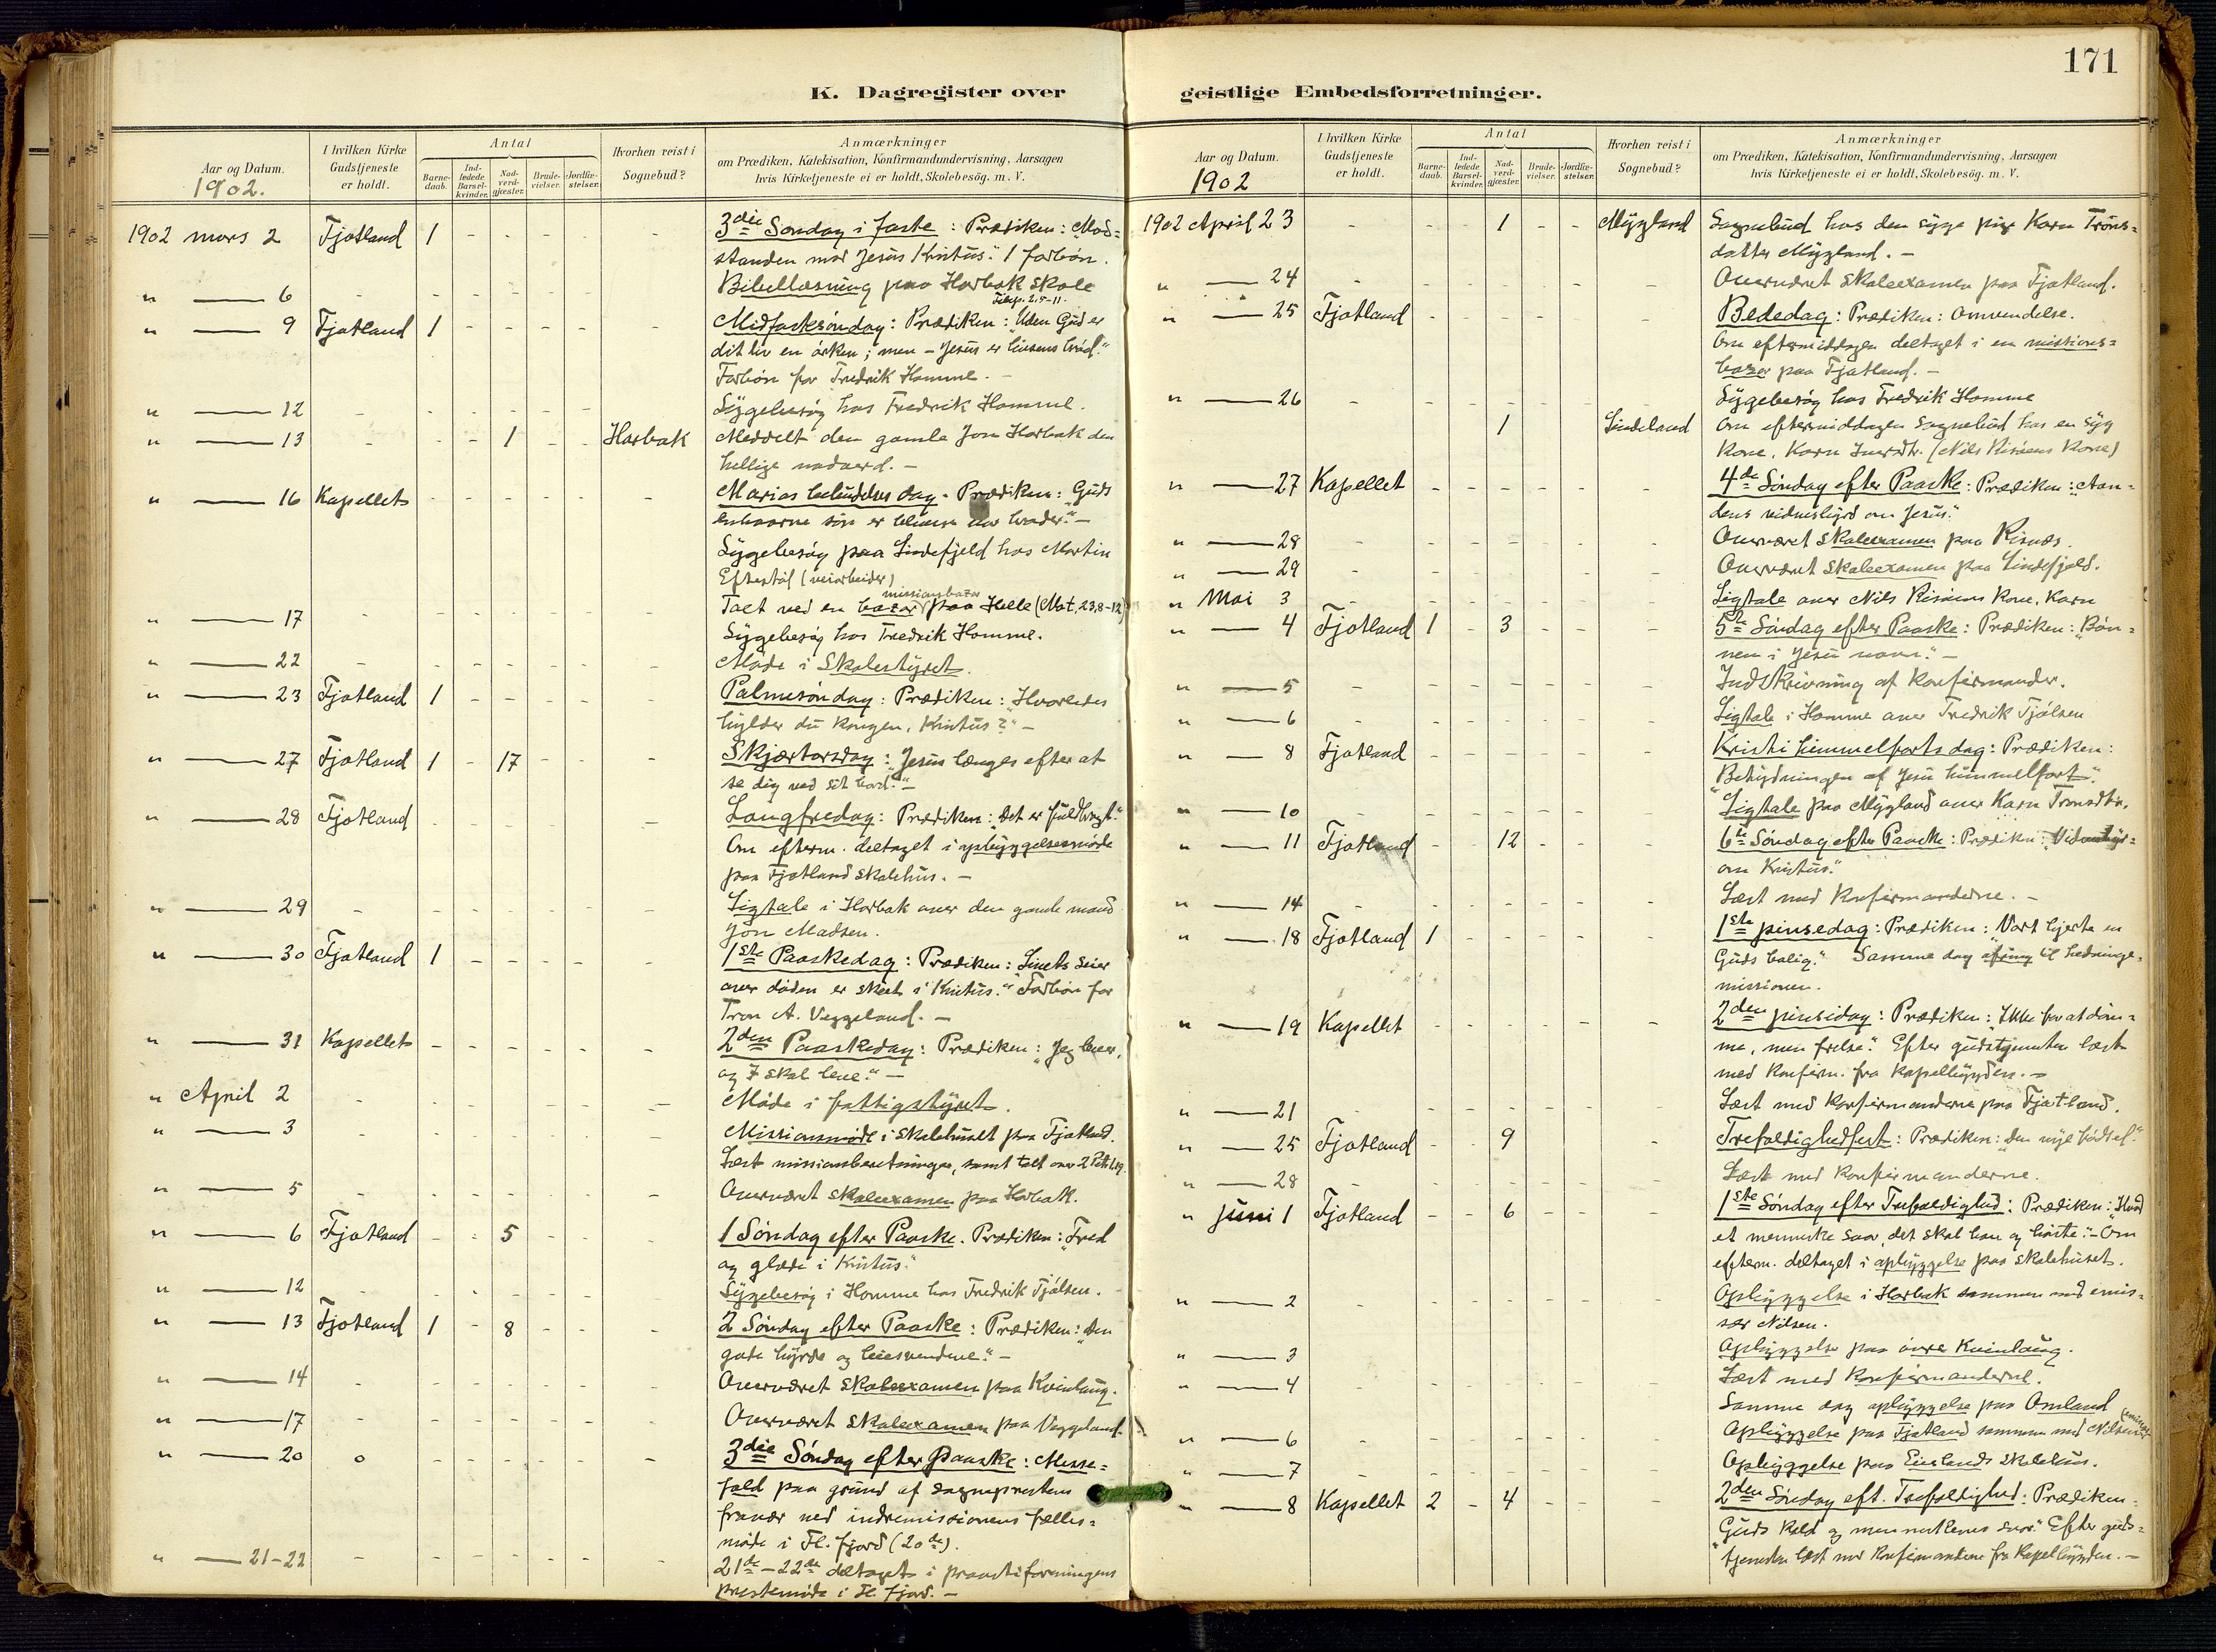 171
K. Dagregister over geistlige Embedsforretninger.
Aar og Datum. 1902.
I hvilken Kirke Gudstjeneste er holdt.
Antal
Barnedaab.
Indledede Barselkvinder.
Nadverdgjæster.
Brudevielser.
Jordfæstelser.
Hvorhen reist i Sognebud?
Anmærkninger
om Prædiken, Katekisation, Konfirmandundervisning, Aarsagen
hvis Kirketjeneste ei er holdt, Skolebesög. m. V.
1902 mars 2 Fjotland 1 - - - - 3die Søndag i faste : Prædiken : "Mod=
standen mod Jesus Kristus." 1 forbøn.
" — 6 - - - - - - - Bibellæsning paa Horbak skole
Filip. 2, 5-11.
" — 9 Fjotland 1 - - - - - Midfastesøndag : Prædiken : "Uden Gud er
dit liv en ørken ; men - Jesus er livsens brød."
Forbøn for Fredrik Homme. -
" — 12 - - - - - - - Sygebesøg hos Fredrik Homme.
" — 13 - - - 1 - - Horbak Meddelt den gamle Jon Horbak den
hellige nadverd. -
" — 16 Kapellet - - - - - - Marias bebudelses dag - Prædiken : Guds
enbaarne søn er bleven vor broder." -
Sygebesøg paa Lindefjeld hos Martin
Eftestøl (veiarbeider)
missionsbazar
" — 17 - - - - - - - Talt ved en bazar paa Helle (Mat. 23,8-12)
Sygebesøg hos Fredrik Homme.
" — 22 - - - - - - - Møde i Skolestyret.
" — 23 Fjotland 1 - - - - - Palmesøndag : Prædiken : "Hvorledes
hylder du kongen, Kristus ?" -
" — 27 Fjotland 1 - 17 - - - Skjærtorsdag : "Jesus længes efter at
se dig ved sit bord." -
" — 28 Fjotland - - - - - - Langfredag : Prædiken : "Det er fuldbragt."
Om efterm. deltaget i opbyggelsesmøde
paa Fjotland skolehus. -
" — 29 - - - - - - - Ligtale i Horbak over den gamle mand
Jon Madsen.
" — 30 Fjotland 1 - - - - - 1ste Paaskedag : Prædiken : Livets seier
over døden er skeet i Kristus." Forbøn for
Tron A. Veggeland. -
" — 31 Kapellet - - - - - - 2den Paaskedag : Prædiken : "Jeg lever,
og I skal leve." -
" April 2 - - - - - - - Møde i fattigstyret.
" — 3 - - - - - - - Missionsmøde i skolehuset paa Fjotland.
Læst missionsberetninger, samt talt over 2 Petr. 1,19.
" — 5 - - - - - - - Overværet skoleexamen paa Horbak.
" — 6 Fjotland - - 5 - - - 1 Søndag efter Paaske. Prædiken : "Fred
og glæde i Kristus."
" — 12 - - - - - - - Sygebesøg i Homme hos Fredrik Fjølsen.
" — 13 Fjotland 1 - 8 - - - 2 Søndag efter Paaske : Prædiken : "Den
gode hyrde og leiesvendene." -
" — 14 - - - - - - - Overværet skoleexamen paa Kvinlaug.
" — 17 - - - - - - - Overværet skoleexamen paa Veggeland.
" — 20 o - - - - - - 3die Søndag efter Paaske : Messe=
fald paa grund af sogneprestens
fravær ved indremissionens fælles=
møde i Fl. fjord (20de).
" — 21-22 - - - - - - - 21de - 22de deltaget i prousti foreningens
prestemøde i Fl. fjord. -
Aar og Datum. 1902
I hvilken Kirke Gudstjeneste er holdt.
Antal
Barnedaab.
Indledede Barselkvinder.
Nadverdgjæster.
Brudevielser.
Jordfæstelser.
Hvorhen reist i Sognebud?
Anmærkninger
om Prædiken, Katekisation, Konfirmandundervisning, Aarsagen
hvis Kirketjeneste ei er holdt, Skolebesög. m. V.
1902 April 23 - - - 1 - - Mygland Sognebud hos den syge pige Karn Trons=
datter Mygland. -
" — 24 - - - - - - - Overværet skoleexamen paa Fjotland.
" — 25 Fjotland - - - - - - Bededag : Prædiken : Omvendelse.
Om eftermiddagen deltaget i en missions=
bazar paa Fjotland. -
" — 26 - - - - - - - Sygebesøg hos Fredrik Homme
1 Lindeland Om eftermiddagen Sognebud hos en syg
kone, Karn (Nils Risøens Kone)
" — 27 Kapellet - - - - - - 4de Søndag efter Paaske : Prædiken : "Aan=
dens vidnesbyrd om Jesus."
" — 28 - - - - - - - Overværet skoleexamen paa Risnæs.
" — 29 - - - - - - - Overværet skoleexamen paa Lindefjeld.
" Mai 3 - - - - - - - Ligtale over Nils Risøens Kone, Karn
" — 4 Fjotland 1 - 3 - - - 5te Søndag efter Paaske : Prædiken : "Bøn=
nen i Jesu navn." -
" — 5 - - - - - - - Indskrivning af konfirmander.
" — 6 - - - - - - - Ligtale i Homme over Fredrik Fjølsen
" — 8 Fjotland - - - - - - Kristi himmelfarts dag : Prædiken :
"Betydningen af Jesu himmelfart."
" — 10 - - - - - - - Ligtale paa Mygland over Karn Tronsdtr.
" — 11 Fjotland - - 12 - - - 6te Søndag efter Paaske : Prædiken :
om Kristus."
" — 14 - - - - - - - Læst med konfirmanderne. -
" — 18 Fjotland 1 - - - - - 1ste pinsedag : Prædiken : "Vort hjerte en
Guds bolig." Samme dag ofring til hedninge=
missionen.
" — 19 Kapellet - - - - - - 2den pinsedag : Prædiken : "Ikke for at døm=
me, men frelse." Efter gudstjenesten læst
med konfirm. fra kapelbygden. -
" — 21 - - - - - - - Læst med konfirmanderne paa Fjotland.
" — 25 Fjotland - - 9 - - Trefoldighedfest : Prædiken : "Den nye fødsel."
" — 28 - - - - - - - Læst med konfirmanderne.
" juni 1 Fjotland - - 6 - - - 1ste Søndag efter Trefoldighed : Prædiken : "Hvad
et menneske saar, det skal han og høste." - Om
efterm. deltaget i opbyggelse paa skolehuset.
" — 2 - - - - - - - Opbyggelse i Horbak sammen med emis=
sær Nilsen.
" — 3 - - - - - - - Opbyggelse paa øvre Kvinlaug.
" — 4 - - - - - - - Læst med konfirmanderne.
Samme dag opbyggelse paa Omland
" — 6 - - - - - - - Opbyggelse paa Fjotland sammen med Nilsen
" — 7 - - - - - - - Opbyggelse paa Eielands skolehus.
" — 8 Kapellet 2 - 4 - - - 2den Søndag eft. Trefoldighed : Prædiken :
"Guds kald og menneskenes svar." Efter guds=
tjenesten læst med konfirmandene fra kapelbygden. -